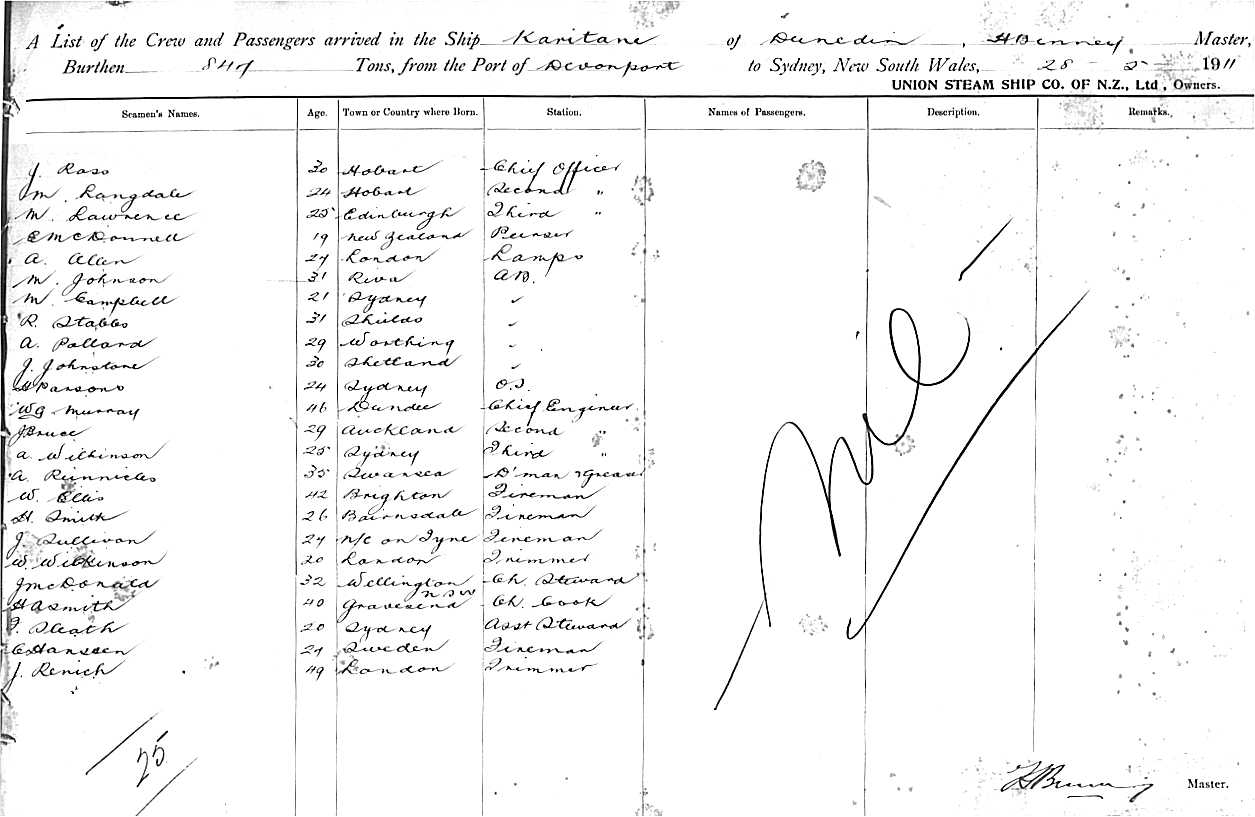 A List of the Crew and Passengers arrived in the Ship Karitane of Dunedin, H Binney, Master,
Burthen 847 Tons, from the Port of Devonport to Sydney, New South Wales, 28 - 5 - 1911
UNION STEAM SHIP CO. OF N.Z., Ltd, Owners.
Seamen's Names. Age. Town or Country where Born. Station. Names of Passengers. Description. Remarks.
J. Ross 30 Hobart Chief Officer
M. Langdale 24 Hobart Second "
M. Lawrence 25 Edinburgh Third "
C McDonnell 19 New Zealand Purser
A. Allen 27 London Lamps
M. Johnson 31 Riva AB.
M. Campbell 21 Sydney "
R. Stabbs 31 Shields "
A. Pollard 29 Worthing "
J. Johnstone 30 Shetland "
Parsons 24 Sydney O.S.
WG Murray 46 Dundee Chief Engineer
J Bruce 29 Auckland Second "
A Wilkinson 25 Sydney Third "
A. Rinnicks 35 Swansea D'man & Greaser
W. Ellis 42 Brighton Fireman
H. Smith 26 Bairnsdale Fireman
J. Sullivan 27 N/C on Tyne Fireman
W. Wilkinson 20 London Trimmer
J McDonald 32 Wellington Ch. Steward
NSW
H A Smith 40 Gravesend Ch. Cook
Sleath 20 Sydney Asst Steward
C Hanssen 27 Sweden Fireman
J. Renich 49 London Trimmer
Nil
25
H Binney Master.